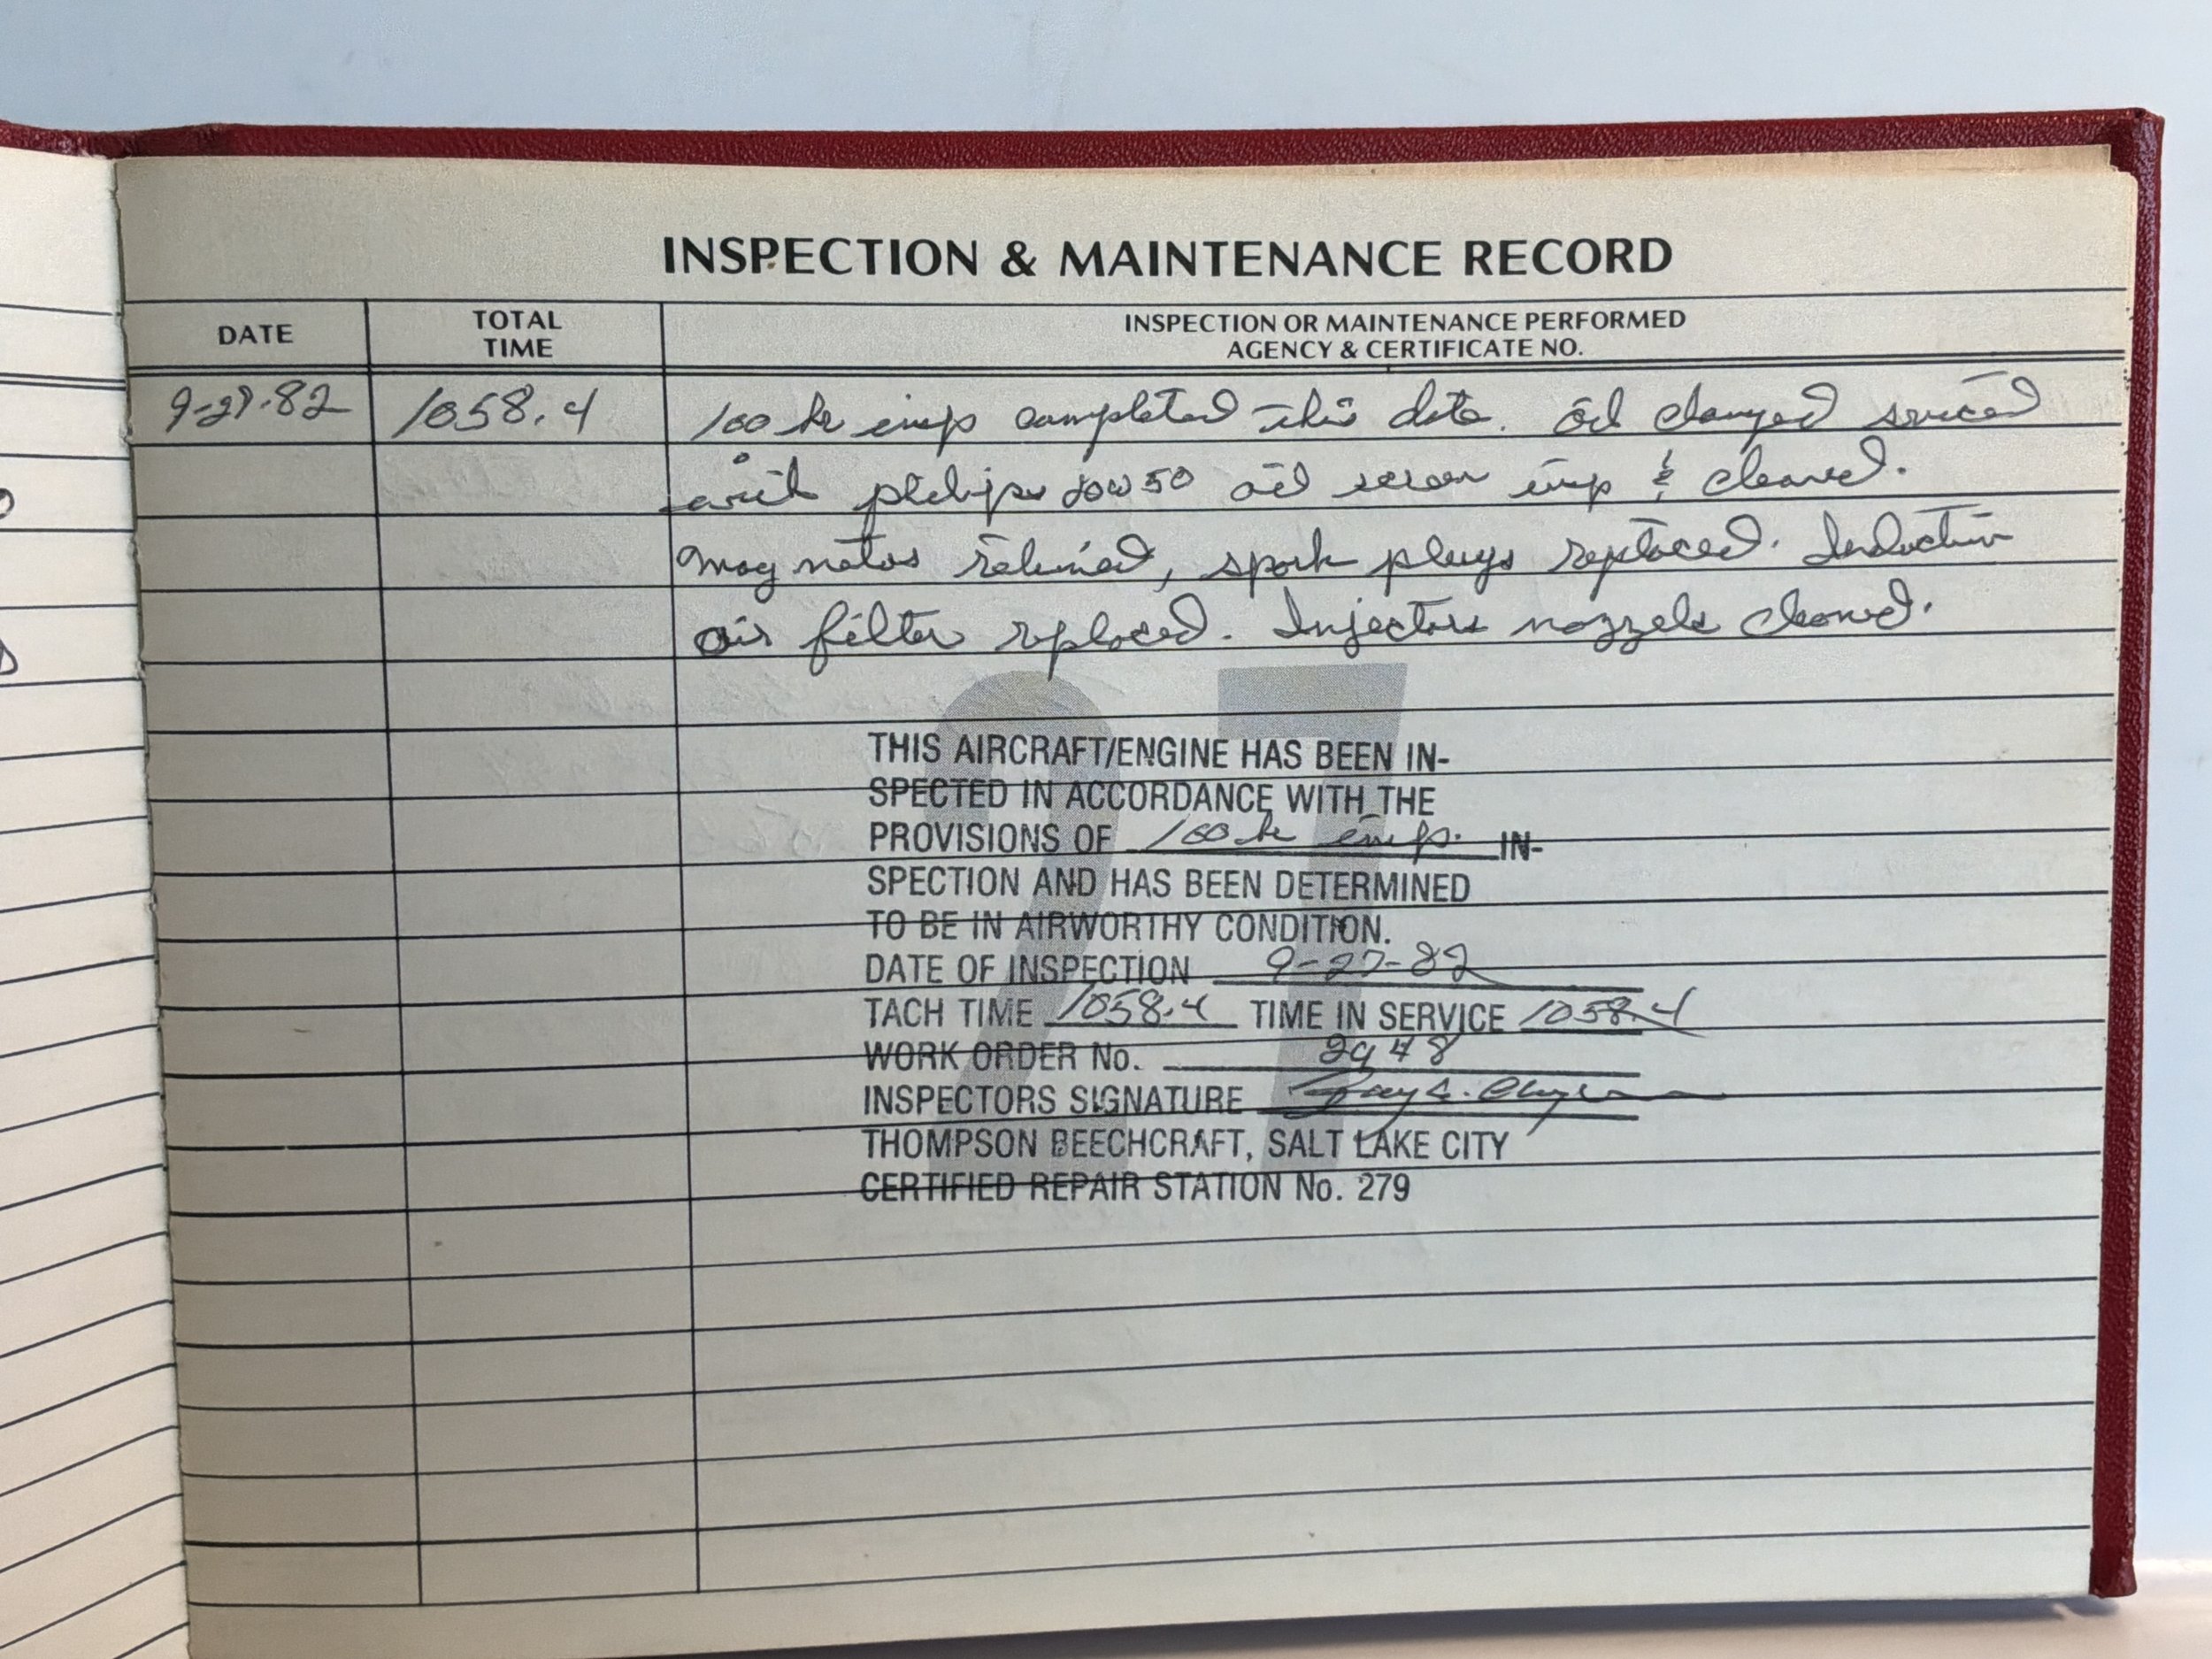 INSPECTION & MAINTENANCE RECORD
DATE
TOTAL
TIME
INSPECTION OR MAINTENANCE PERFORMED
AGENCY & CERTIFICATE NO.
9-27-82 1058.4 100 hr insp completed this date. Oil changed serviced
with philips 20W50 oil screen insp & cleaned.
Magnetos retimed, spark plugs replaced. Induction
air filter replaced. Injectors nozzels cleaned.
27
THIS AIRCRAFT/ENGINE HAS BEEN IN-
SPECTED IN ACCORDANCE WITH THE
PROVISIONS OF 100 hr insp. IN-
SPECTION AND HAS BEEN DETERMINED
TO BE IN AIRWORTHY CONDITION.
DATE OF INSPECTION 9-27-82
TACH TIME 1058.4 TIME IN SERVICE 1058.4
WORK ORDER No. 2948
INSPECTORS SIGNATURE
THOMPSON BEECHCRAFT, SALT LAKE CITY
CERTIFIED REPAIR STATION No. 279